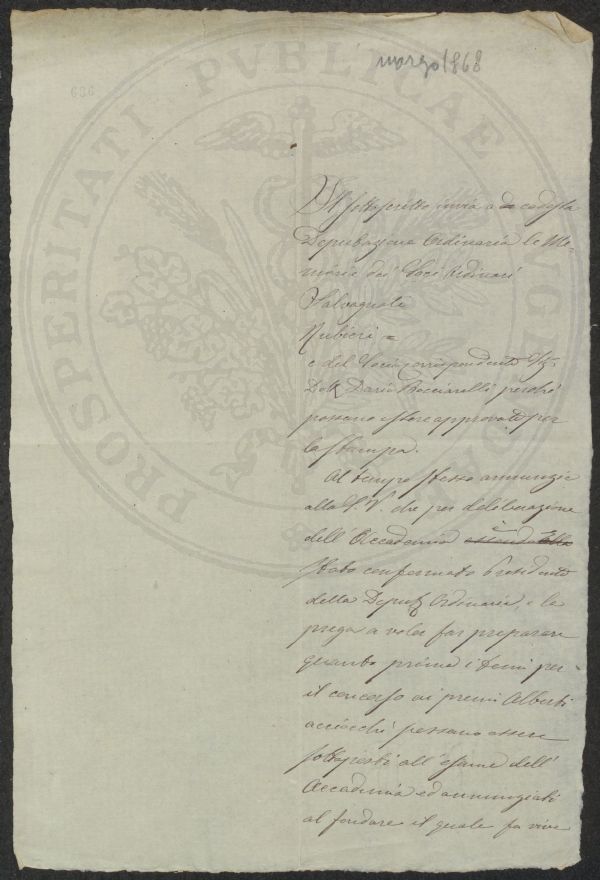 marzo 1868
686
PROSPERITATI PUBLICAE AUGENDAE
Il sottoscritto invia a codesta
Deputazione Ordinaria le Me-
morie dei Soci Ordinari
Salvagnoli
Rubieri =
e del Socio Corrispondente Sig.
Dott. Dario Bocciarelli perché
possano essere approvate per
la stampa.
Al tempo stesso annunzia
alla S. V. che per deliberazione
dell'Accademia è
stato confermato Presidente
della Deput. Ordinaria, e la
prega a voler far preparare
quanto prima i temi per
il concorso ai premi Alberti
acciocché possano essere
sottoposti all'esame dell'
Accademia ed annunziati
al fondare il quale fa vive